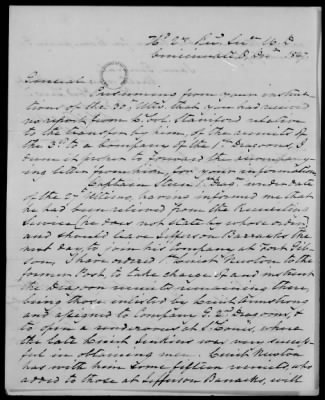 Hd. Qrs. Rec. Serv. W. D.
Cincinnati O, Dec. 1847.
General
Presuming from your instructions
of the 30th Ulto. that you had received
no report from Lt. Col. Staniford relative
to the transfer by him, of the recruits of
the 3d to a Company of the 1st Dragoons, I
deem it proper to forward the accompanying
letter from him, for your information.
Captain Steen 1st Drags. under date
of the 2d Ultimo, having informed me that
he had been relieved from the Recruiting
Service (he does not state by whose order)
and should leave Jefferson Barracks the
next day to join his Company at Fort Gibson,
I have ordered Lieut. Ruston to the
former Post, to take charge of, and instruct
the Dragoon recruits remaining there,
being those enlisted by Lieut. Armstrong
and assigned to Company G. 2d Dragoons, &
to open a rendezvous in St. Louis, where
the late Lieut. Jenkins was very successful
in obtaining men. Lieut. Ruston
has with him some fifteen recruits, who
added to those at Jefferson Barracks, will